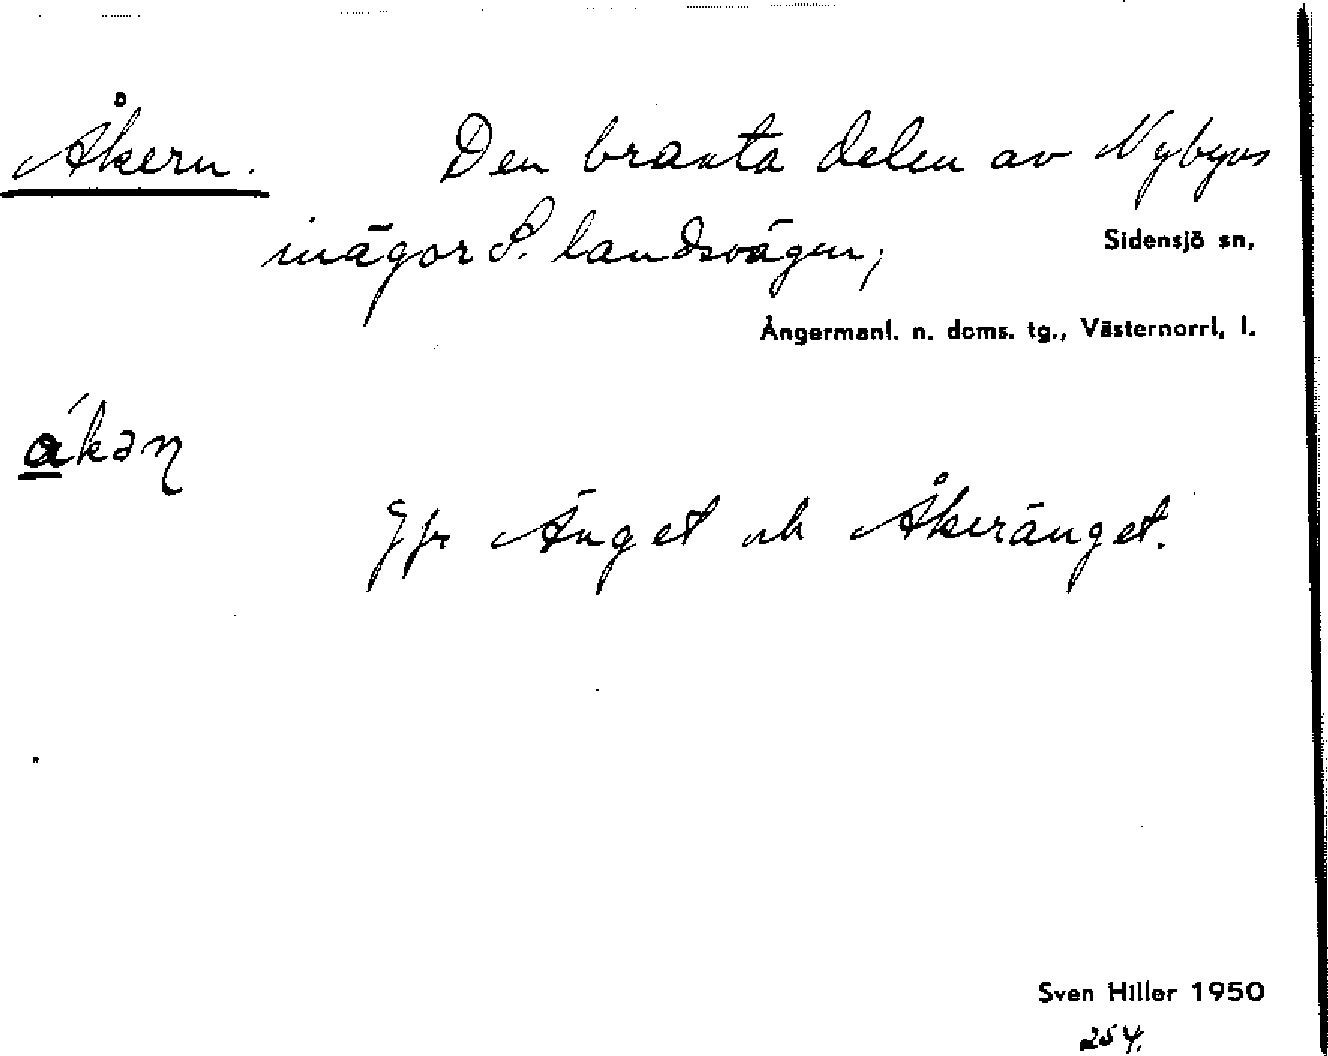 Åkern. Den branta delen av Nybyns
inägor S. landsvägen;
Sidensjö sn,
Ångermanl. n. doms. tg., Västernorrl, l.
ákən
Jfr Änget och Åkeränget.
Sven Hiller 1950
254.